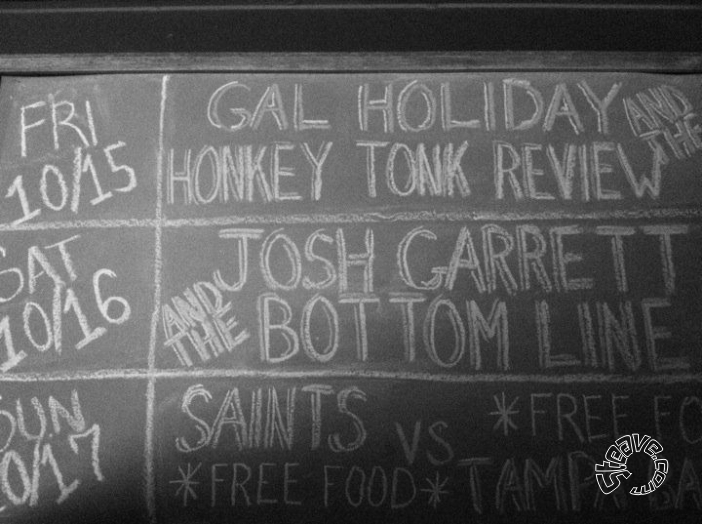 FRI
10/15
GAL HOLIDAY AND THE
HONKEY TONK REVIEW
SAT
10/16
JOSH GARRETT
AND THE BOTTOM LINE
SUN
10/17
SAINTS VS *FREE FO
*FREE FOOD* TAMPA BA
steave.com